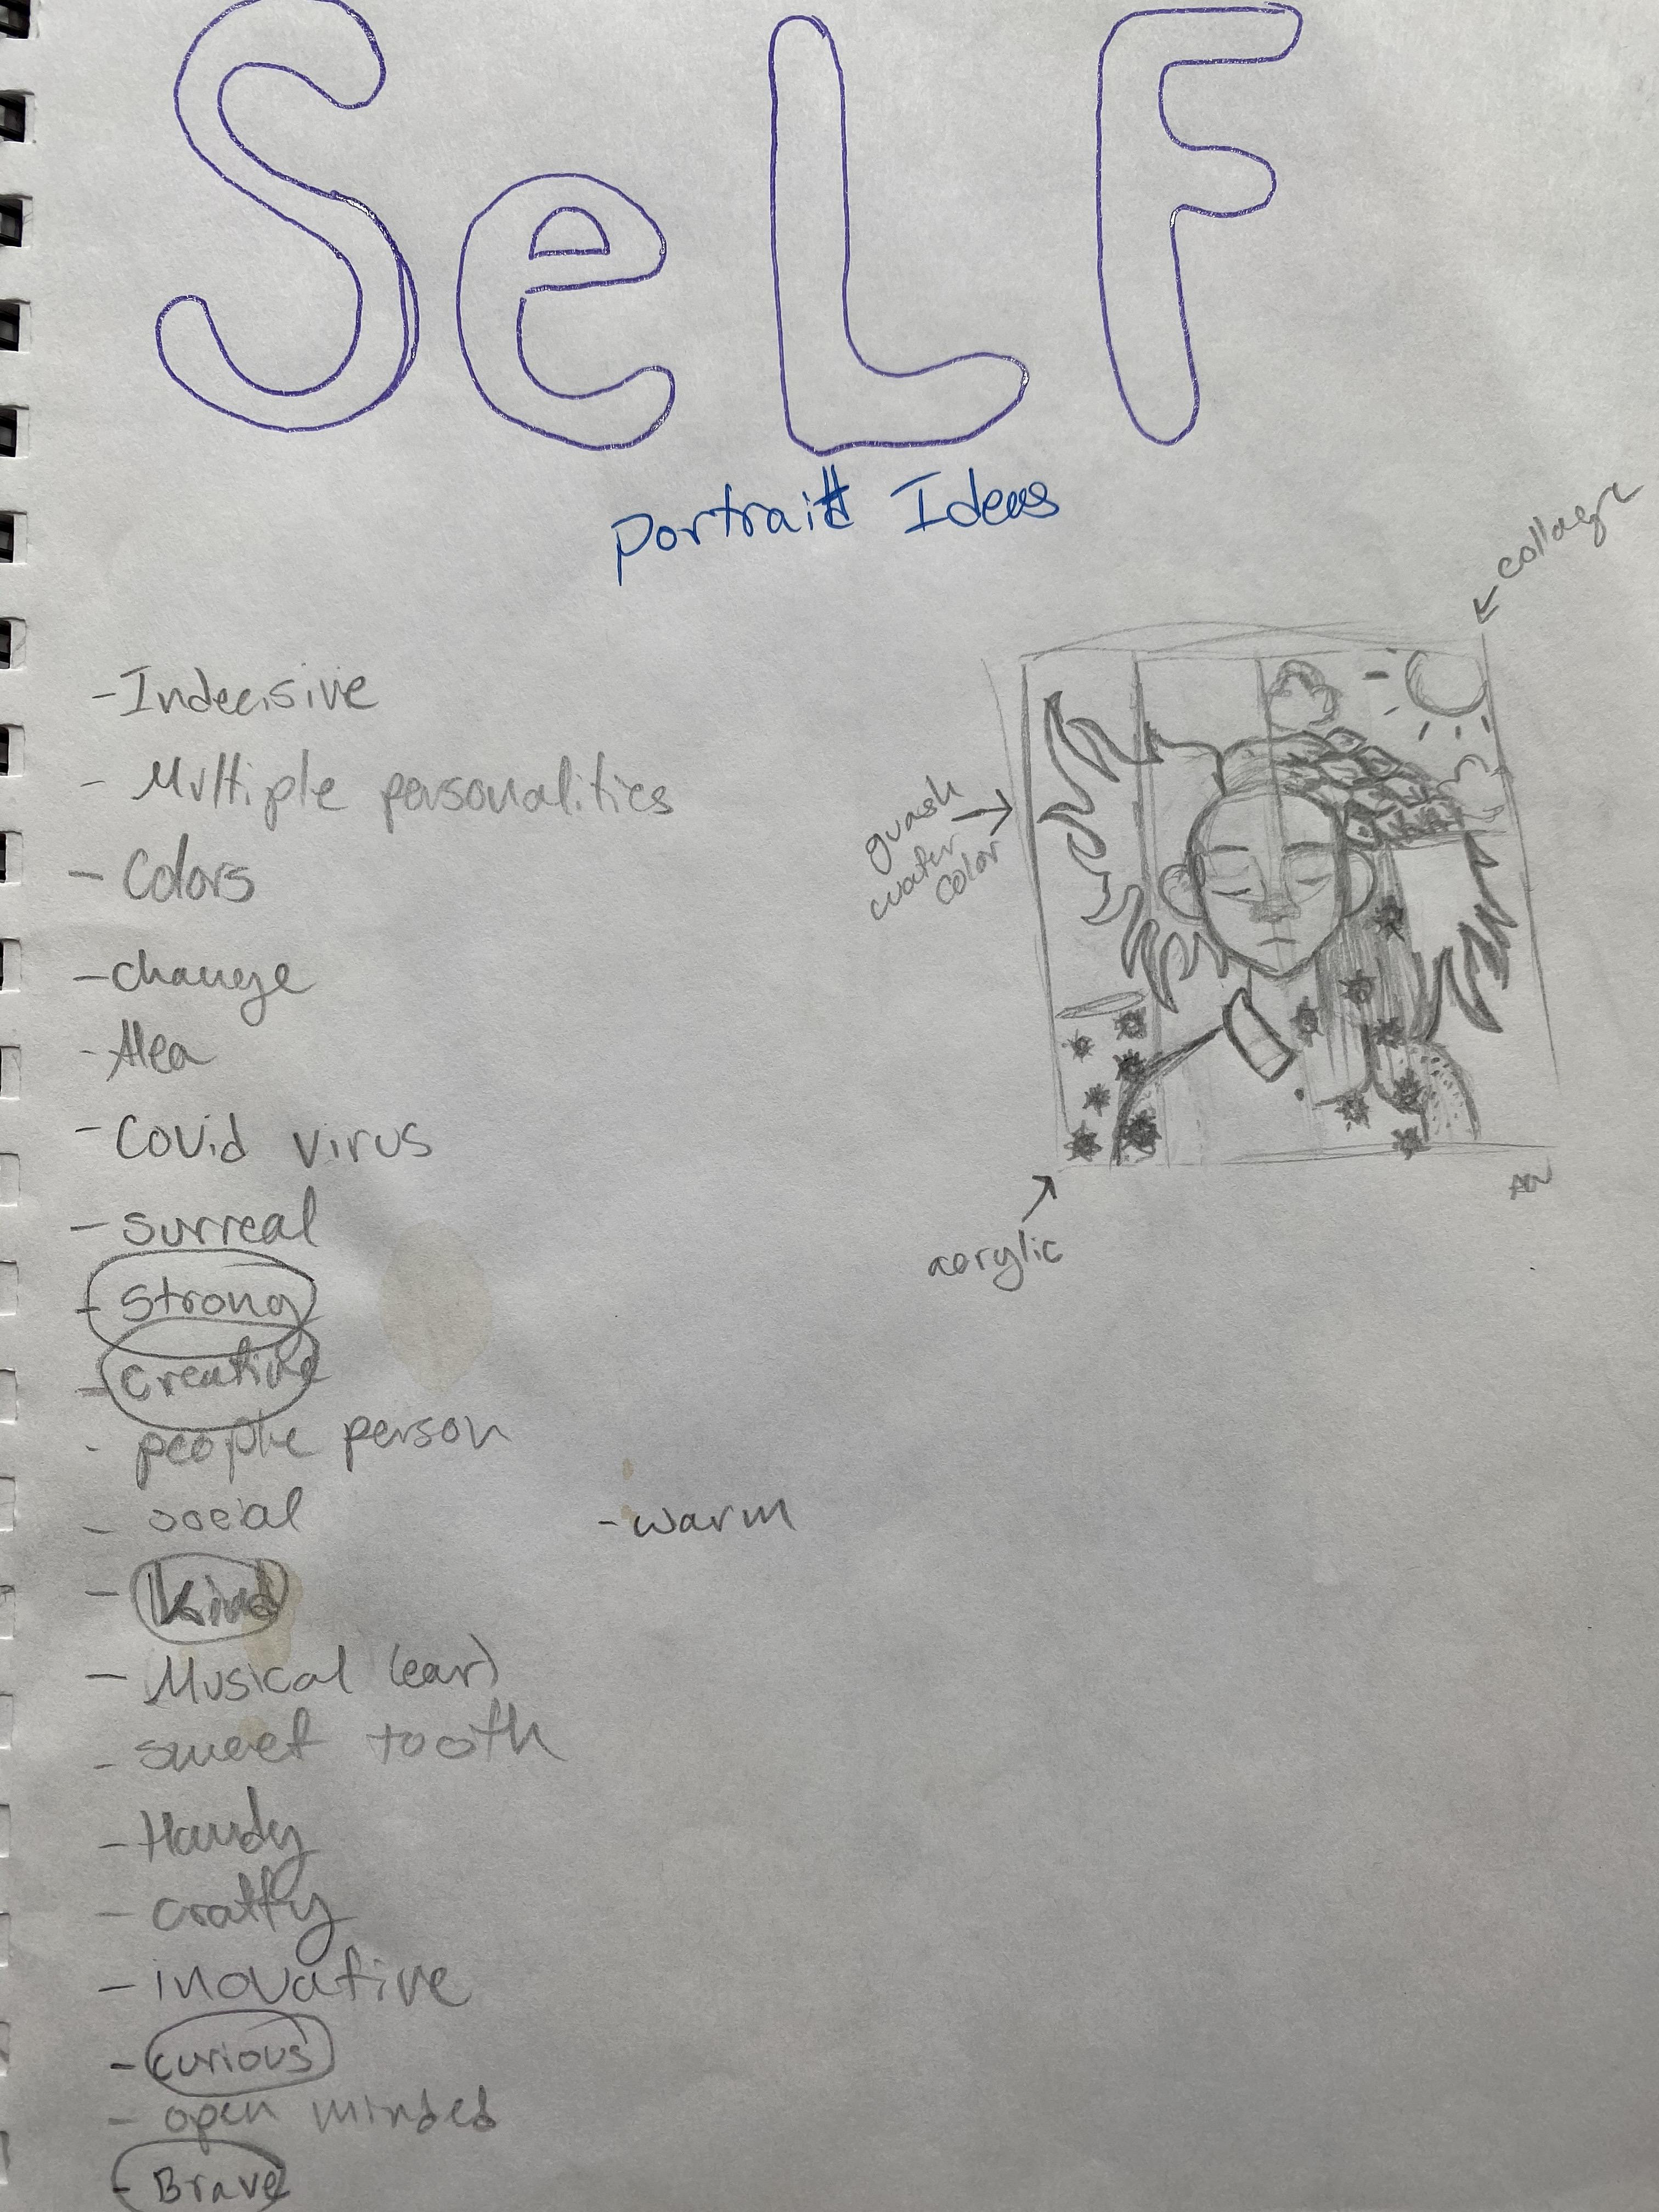 SeLF
portrait Ideas
collage
- Indecisive
- Multiple personalities
guash
water
color
- Colors
- change
- Covid virus
- surreal
acrylic
- Strong
- creative
- people person
- social
- warm
- Kind
- Musical (ear)
- sweet tooth
- Handy
- crafty
- inovative
- curious
- open minded
- Brave